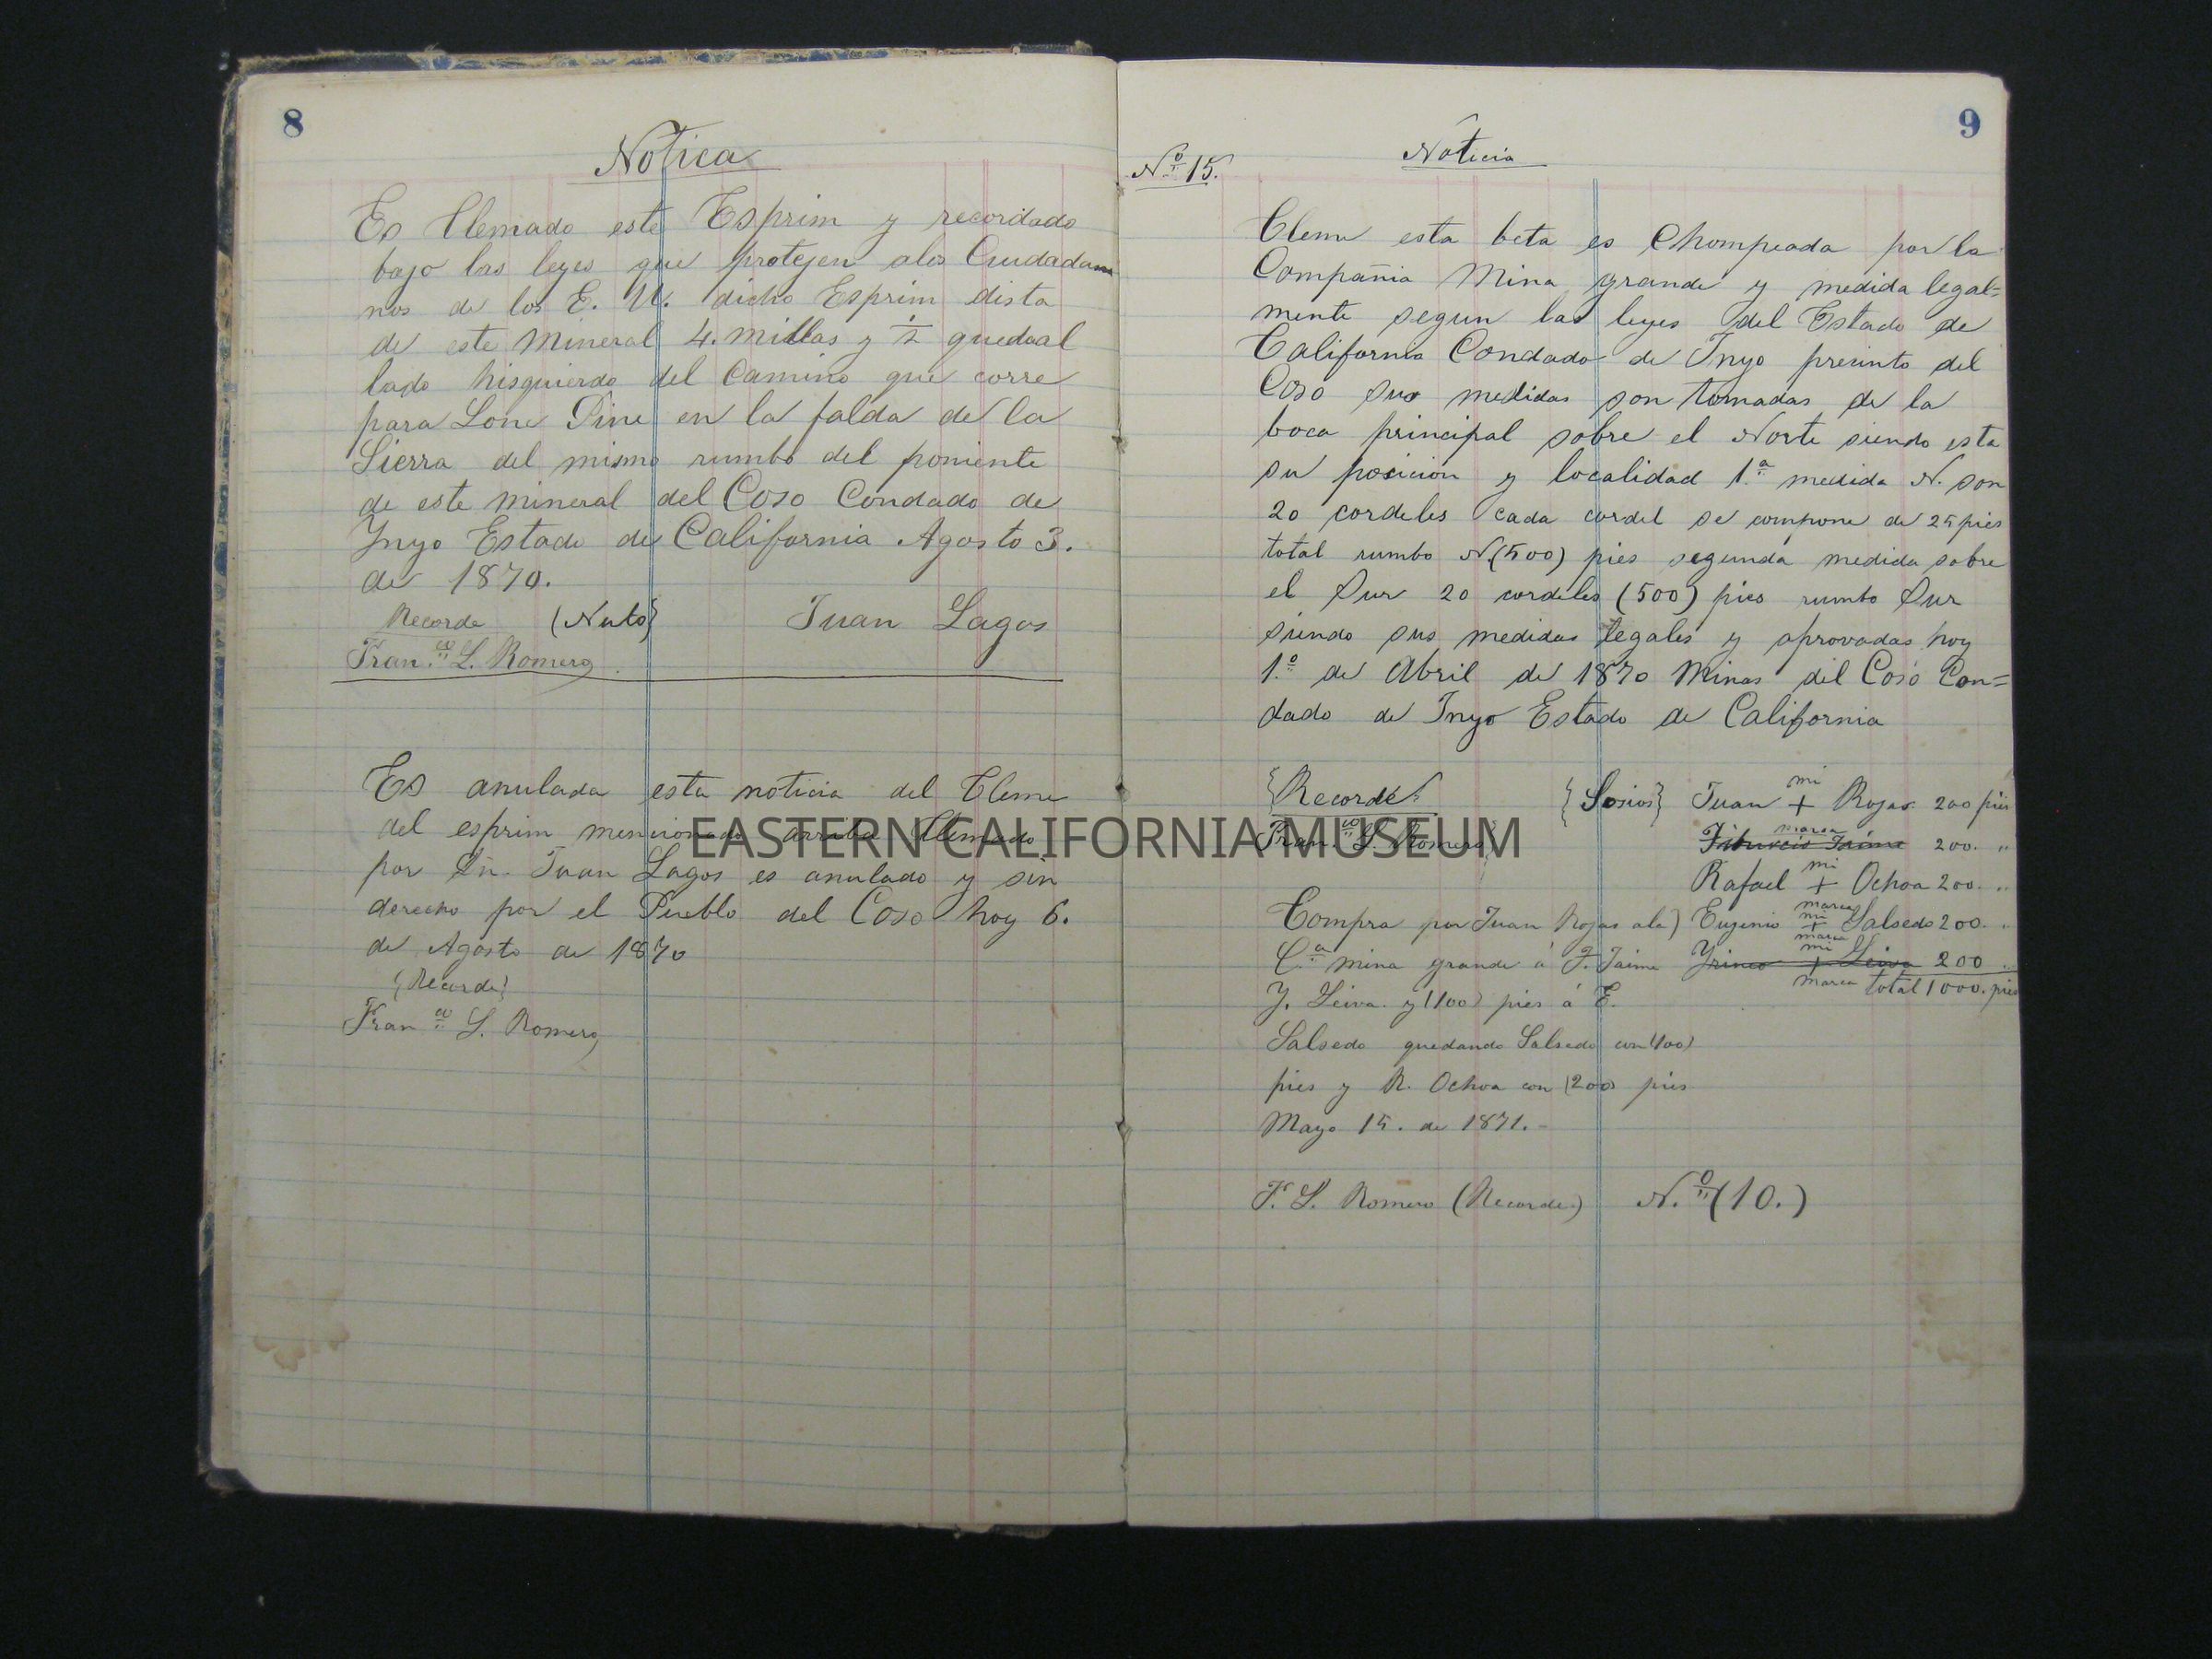 8
Notica
Es Clemado este Esprim y recordado
bajo las leyes que protejen alos Ciudadam
nos de los E. U. dicho Esprim dista
de este Mineral 4. millas y ½ quedaal
lado hisquierdo del Camino que corre
para Lone Pine en la falda de la
Sierra del mismo rumbo del poniente
de este mineral del Coso Condado de
Ynyo Estado de California Agosto 3.
de 1870.
Recorde (Nulo) Juan Lagos
Fran.co L. Romero
Es anulada esta noticia del Cleme
del esprim mencionado arriba Clemado
por Dn. Juan Lagos es anulado y sin
derecho por el Pueblo del Coso hoy 6.
de Agosto de 1870
{Recorde}
Fran co L. Romero
9
No. 15.
Noticia
Cleme esta beta es Chompeada por la
Compañia Mina grande y medida legal=
mente segun las leyes del Estado de
California Condado de Inyo presinto del
Coso sus medidas son tomadas de la
boca principal sobre el Norte siendo esta
su posicion y localidad 1.a medida N. son
20 cordeles cada cordel se compone de 25 pies
total rumbo N.(500) pies segunda medida sobre
el Sur 20 cordeles (500) pies rumbo Sur
siendo sus medidas legales y aprovadas hoy
1.o de Abril de 1870 Minas del Coso Con=
dado de Inyo Estado de California
{Recorde} {Sosios} Juan mi + marca Rojas 200 pies
Fran.co L. Romero Jaime 200. "
Rafael mi + marca Ochoa 200. "
Compra por Juan Rojas ala) Eugenio mi + marca Salsedo 200. "
C.a mina grande á T. Jaime Yrineo mi + marca Leiva 200 "
total 1000. pies
Y. Leiva y (100) pies á E.
Salsedo quedando Salsedo con (100)
pies y R. Ochoa con (200) pies
Mayo 15. de 1871.-
F. L. Romero (Recorde) N.o (10.)
EASTERN CALIFORNIA MUSEUM